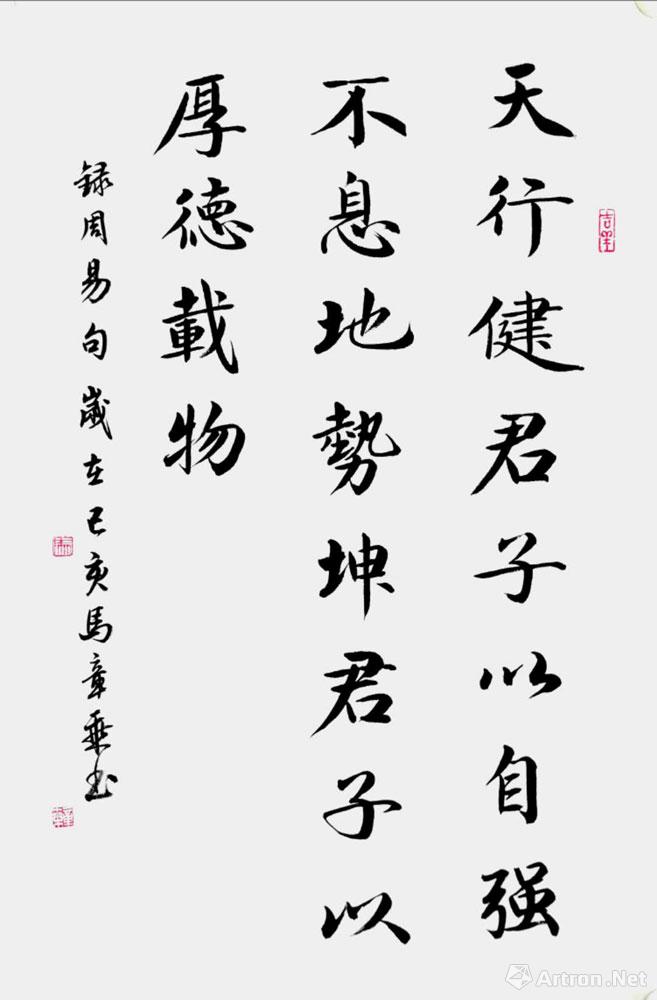 天行健君子以自强
不息地勢坤君子以
厚德載物
録周易句歲在己亥馬章乘书
Artron.Net